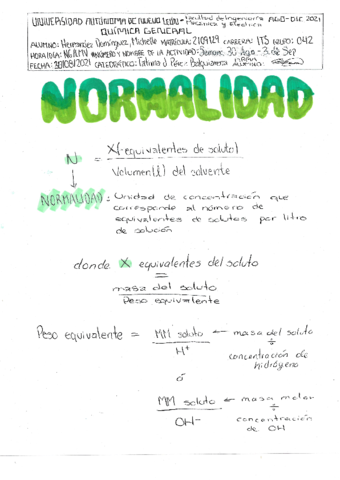 UNIVERSIDAD AUTÓNOMA DE NUEVO LEÓN - Facultad de Ingeniería Mecánica y Eléctrica AGO-DIC 2021
QUÍMICA GENERAL
ALUMNO: Hernández Domínguez, Michelle MATRÍCULA: 2109129 CARRERA: ITS GRUPO: 042
NOMBRE DE LA ACTIVIDAD: Semana: 30 Ago - 3 de Sep
FECHA: 30/08/2021 CATEDRÁTICO: FIRMA ALUMNO:
NORMALIDAD
N = X(-equivalentes de soluto)
Volumen(l) del solvente
NORMALIDAD: Unidad de concentración que
corresponde al número de
equivalentes de solutos por litro
de solución
donde X equivalentes del soluto
=
masa del soluto
Peso equivalente
Peso equivalente = MM soluto ← masa del soluto
H+ ÷
concentración de
hidrógeno
ó
MM soluto ← masa molar
OH- ÷
concentración
de OH